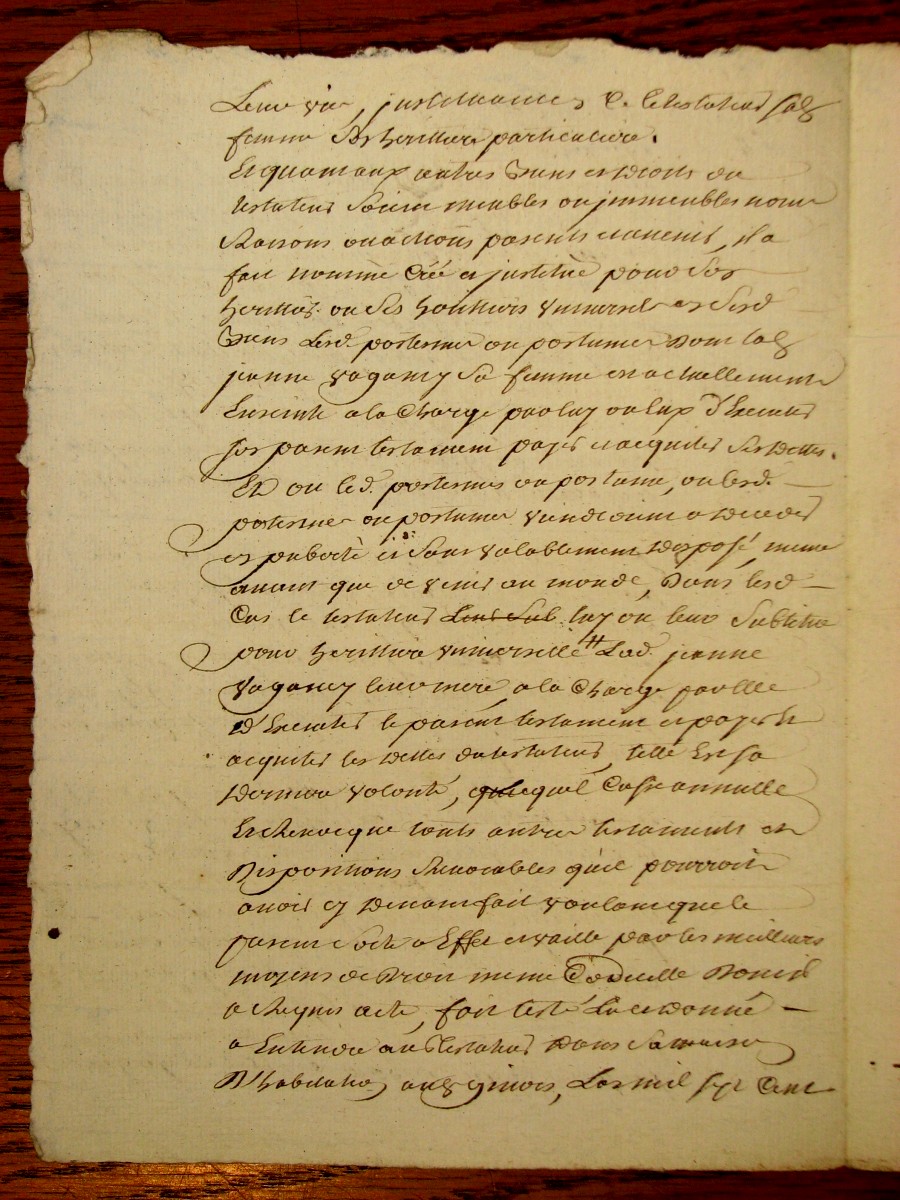 Leur vie, jnstituant led. testateur sad.
femme Son heritiere particuliere.
Et quant aux autres biens et droits du
testateur Soient meubles ou jmmeubles noms
Raisons ou actions presents et avenir, il a
fait nommé Créé et jnstitué pour Ses
heritiers ou Ses heritiers universels en Sesd.
biens Lesd. posthumes ou posthumes Dont lad.
jeanne vaganay Sa femme est actuellement
Enceinte a la Charge par luy ou eux d'Executer
son present testament payer et acquiter Ses dettes.
Et ou led. posthumes ou postume, ou lesd.
postumes ou postumes viendroient a deceder
en puberté et Sans valablement disposé, meme
avant que de venir au monde, Dans lesd.
Cas le testateur luy ou leur Subtitue
pour heritiere universelle Lad. jeanne
vaganay leur mere, a la Charge par Elle
d'Executer le present testament et payer Et
acquiter les dettes du testateur, telle Est sa
derniere volonté, qu'il Casse annulle
Et Revocque touts autres testaments et
Dispositions Revocables qu'il pourroit
avoir cy devant fait voulant que le
present Sorte a Effet et vaille par les meilleurs
moyens de Droit meme Codicille Dont il
a Requis acte, fait testé Lu et donné
a Entendre au testateur dans Sa maison
D'habitation, Lan mil sept Cent